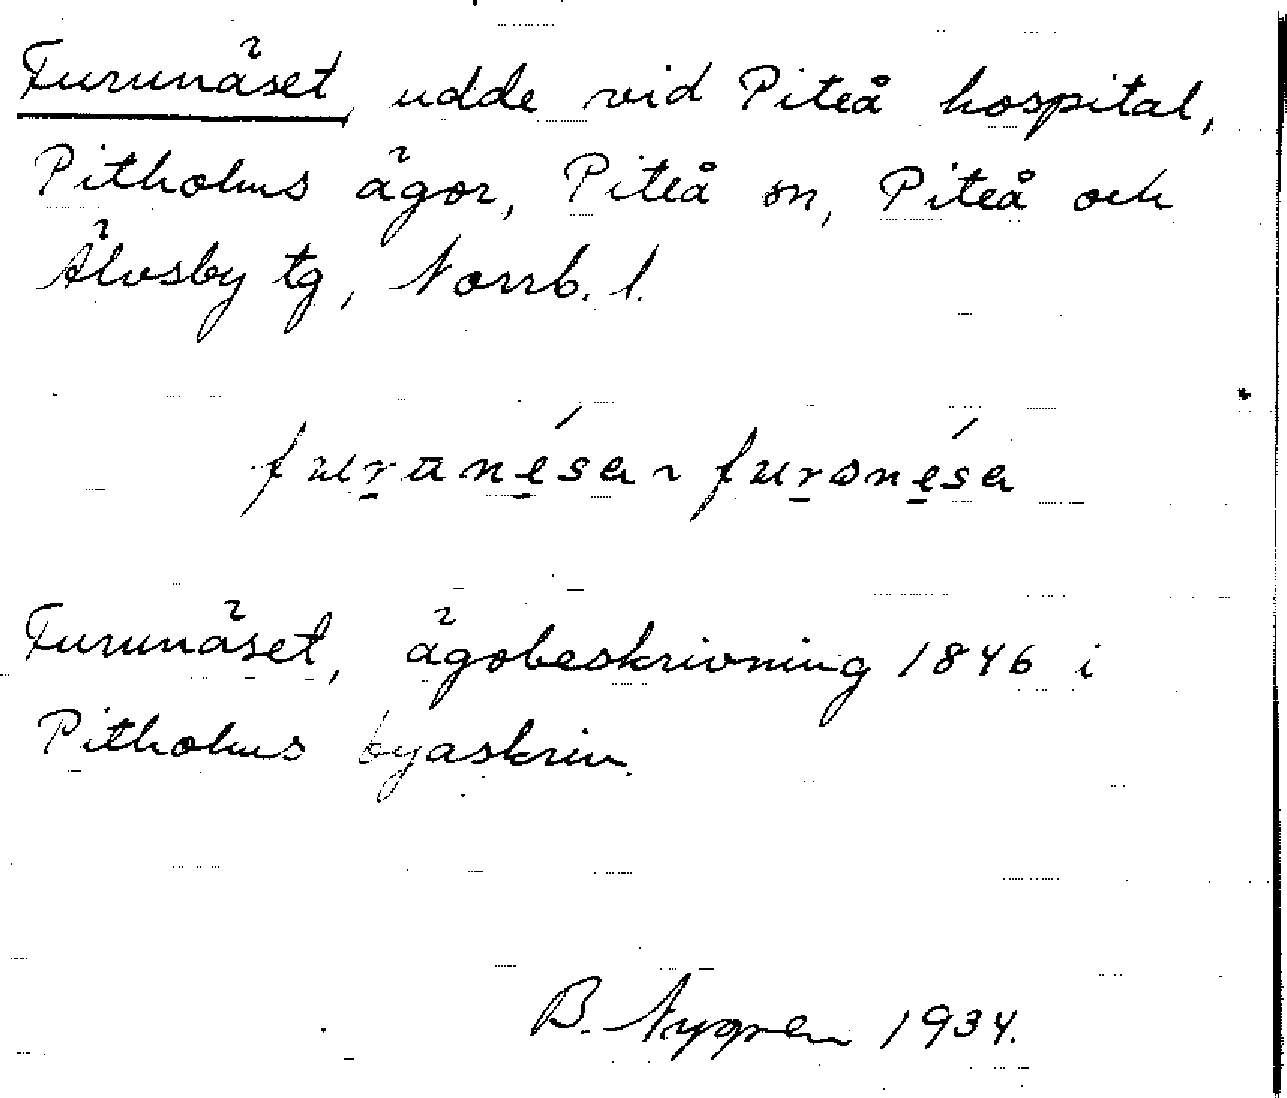 Furunäset, udde vid Piteå hospital,
Pitholms ägor, Piteå sn, Piteå och
Älvsby tg, Norrb. l.
furanésa ~ furənésa
Furunäset, ägobeskrivning 1846 i
Pitholms byaskrin.
B. Nygren 1934.